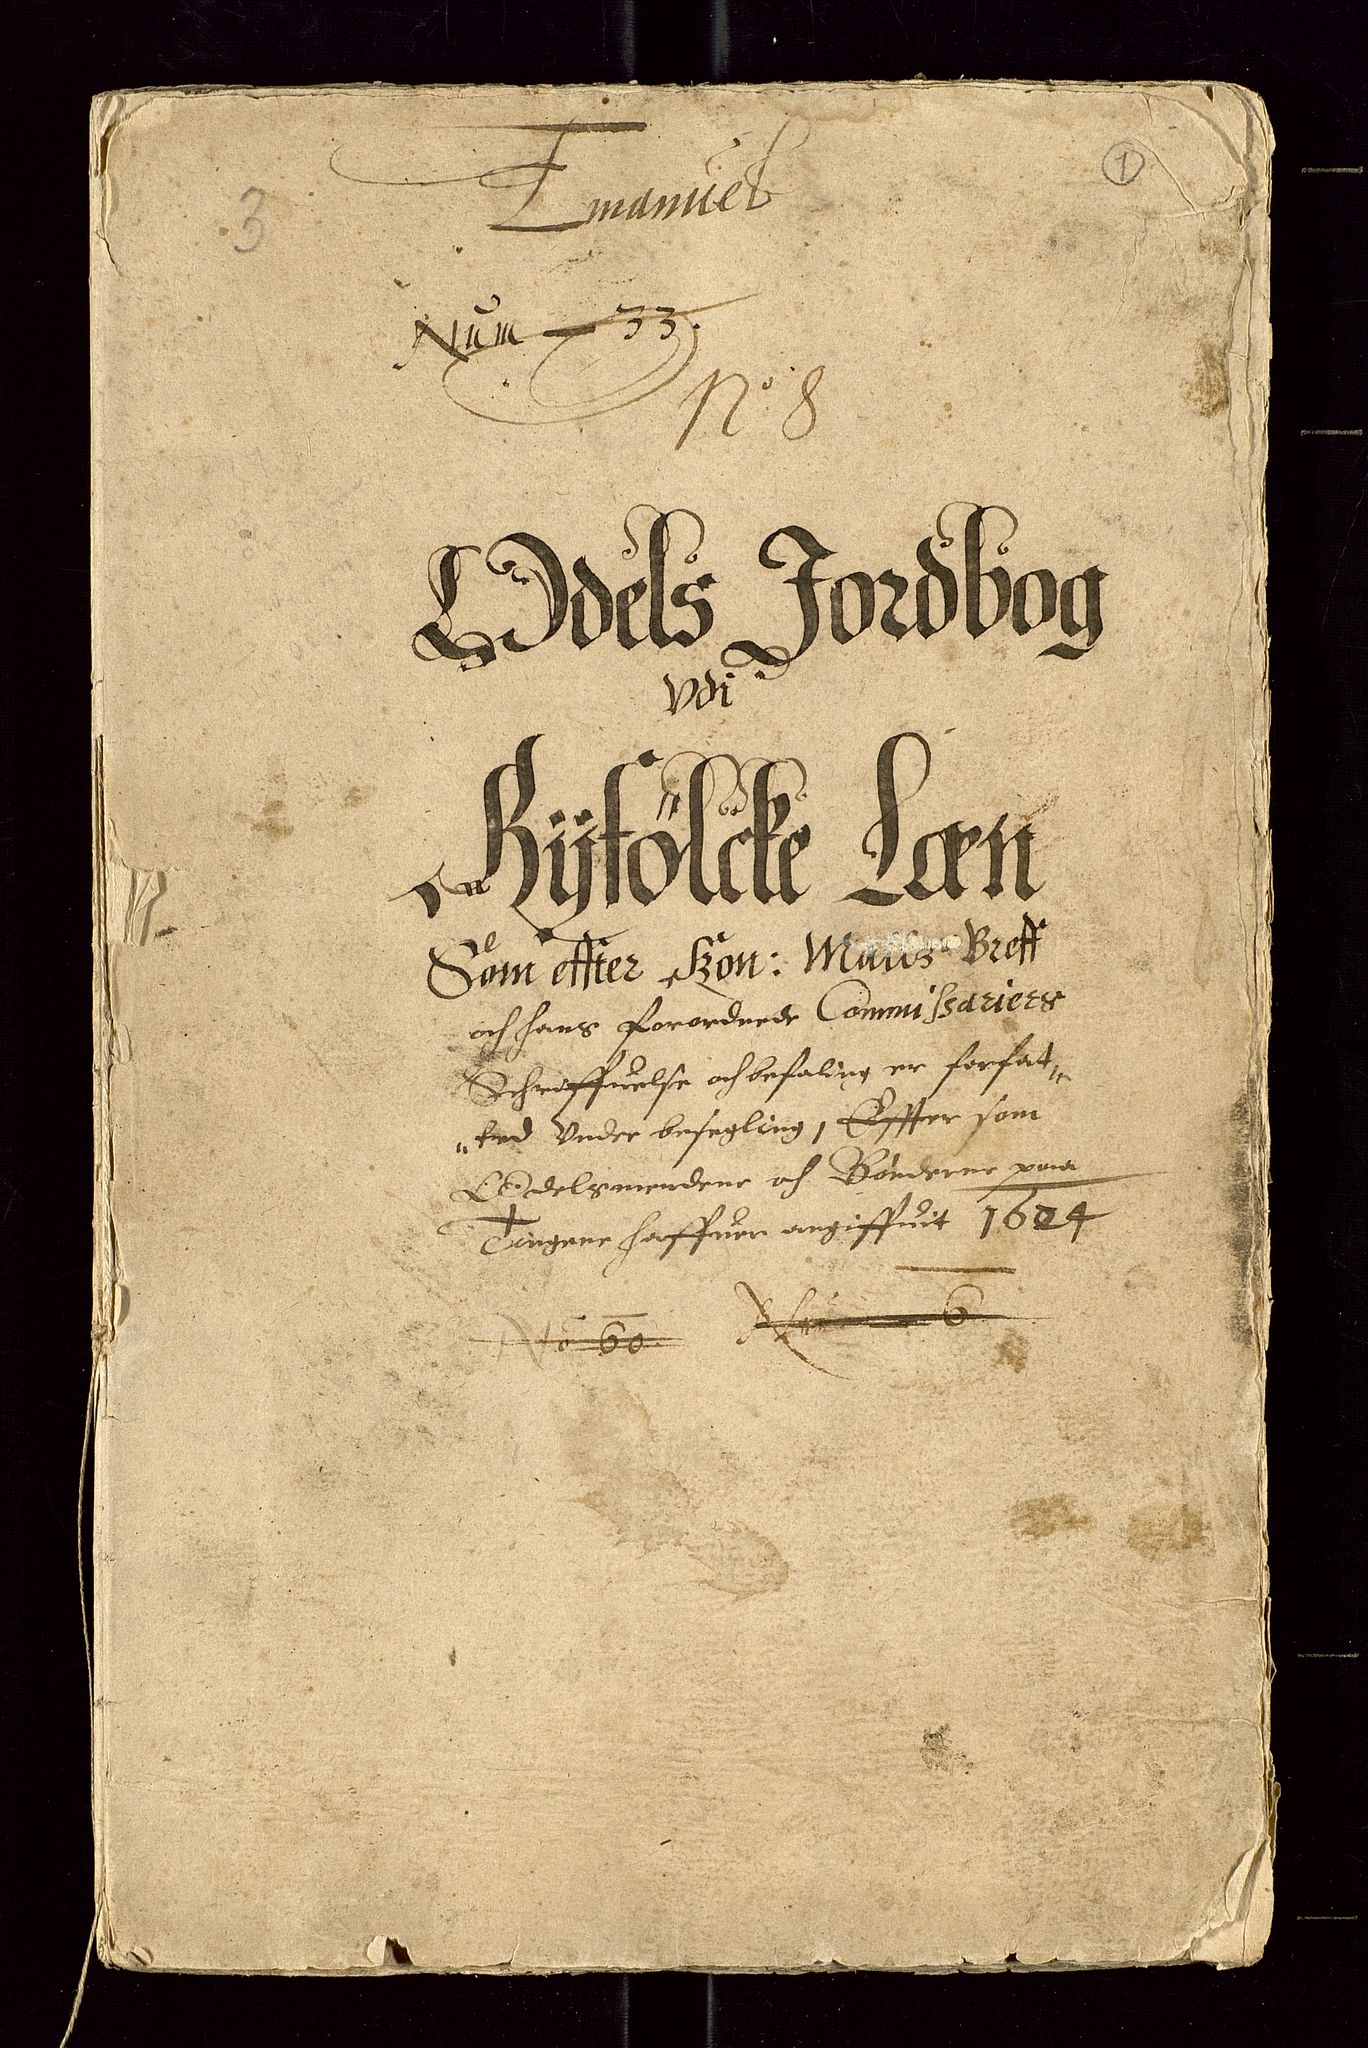 Emanuel
1
3
Num — 33.
No. 8
Odels Jordbog
vdi
Ryfölcke Læn
Som effter Kon: Matts Breff
och hans forordnede Commissariers
Schriffuelse och befaling er forfat„
„ted Vnder besegling, Effter som
Odelsmendene och Bönderne paa
Tingene haffuer angiffuit 1624
No 60.
6